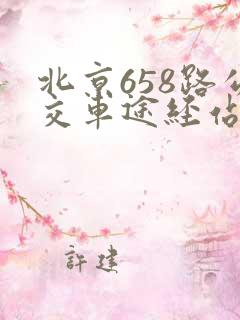 北京658路公
交車途经佔
許建